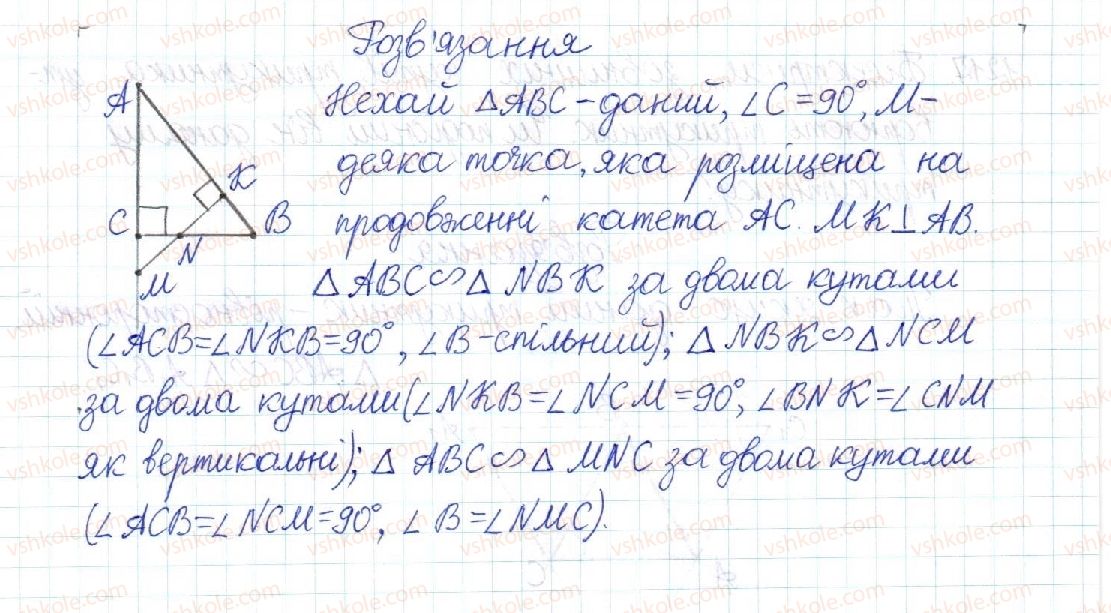 Розв'язання
Нехай △ABC – даний, ∠C = 90°, M –
деяка точка, яка розміщена на
продовженні катета AC. MK⊥AB.
△ABC∽△NBK за двома кутами
(∠ACB=∠NKB=90°, ∠B-спільний); △NBK∽△NCM
за двома кутами (∠NKB=∠NCM=90°, ∠BNK=∠CNM
як вертикальні); △ABC∽△MNC за двома кутами
(∠ACB=∠NCM=90°, ∠B=∠NMC).
A
K
C
B
N
M
vshkole.com